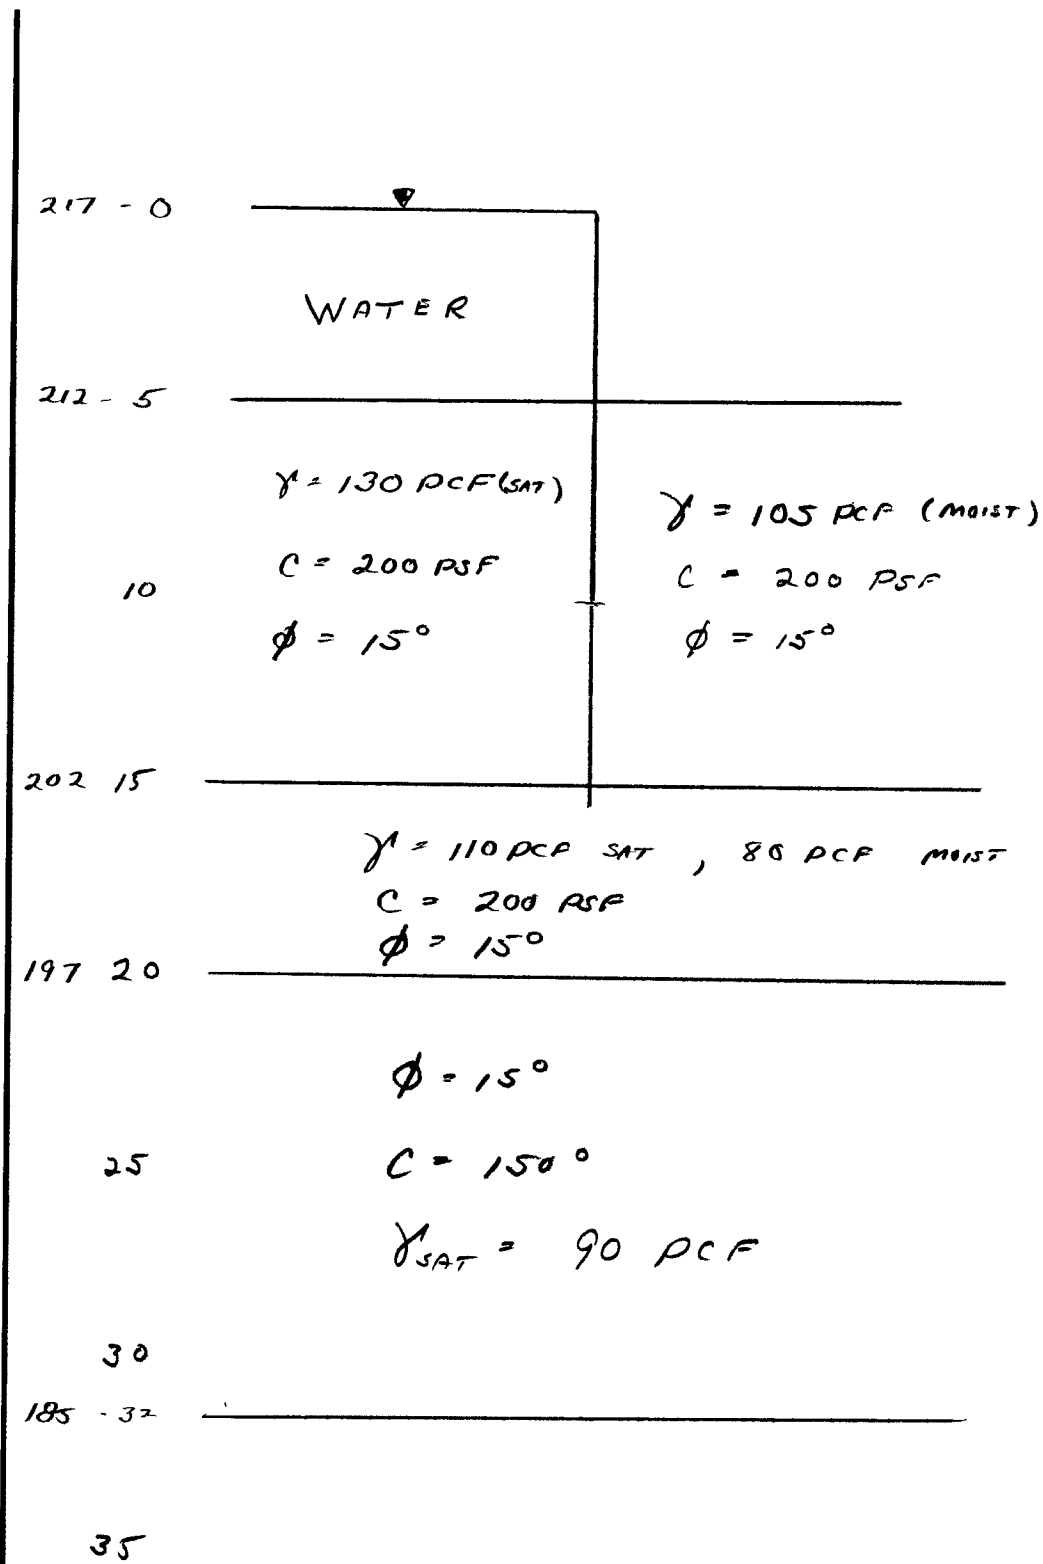 217 - 0
WATER
212 - 5
γ = 130 PCF (SAT)
C = 200 PSF
φ = 15°
γ = 105 PCF (MOIST)
C = 200 PSF
φ = 15°
10
202 15
γ = 110 PCF SAT , 80 PCF MOIST
C = 200 PSF
φ = 15°
197 20
φ = 15°
25
C = 150°
γSAT = 90 PCF
30
185 - 32
35